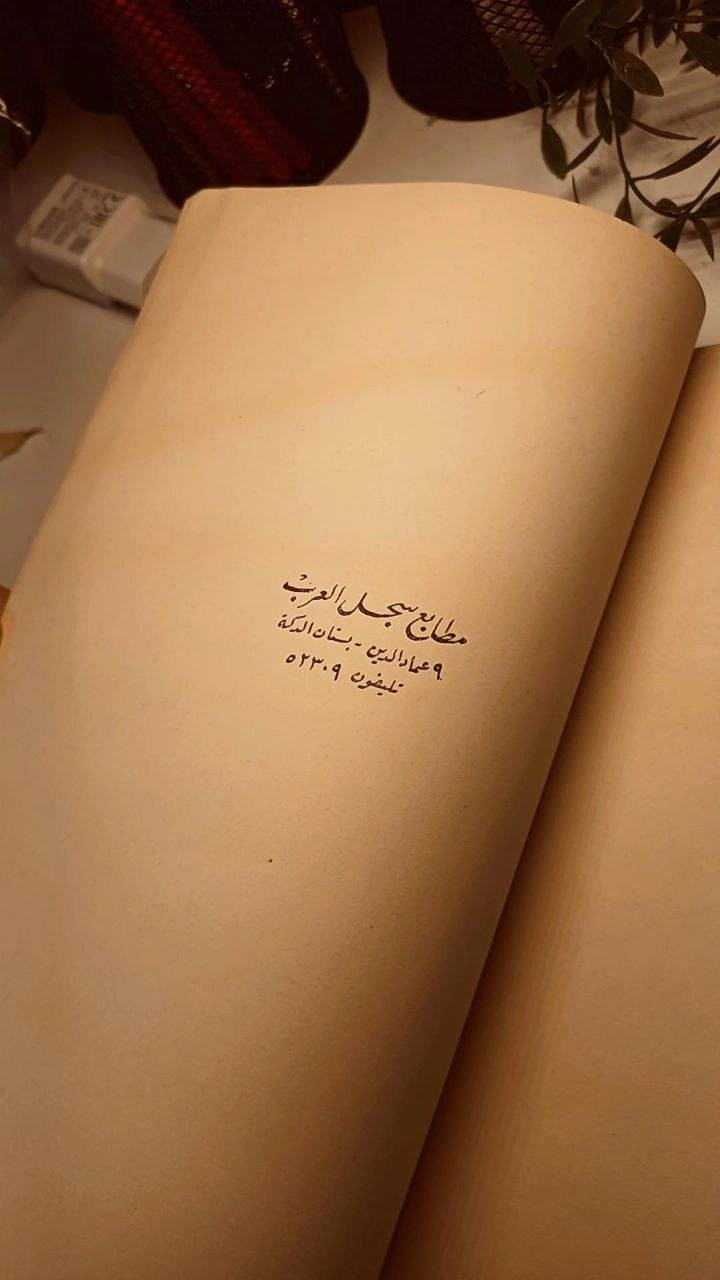 مطابع سجل العرب
٩ عماد الدين - بستان الدكة
تليفون ٥٢٣٠٩